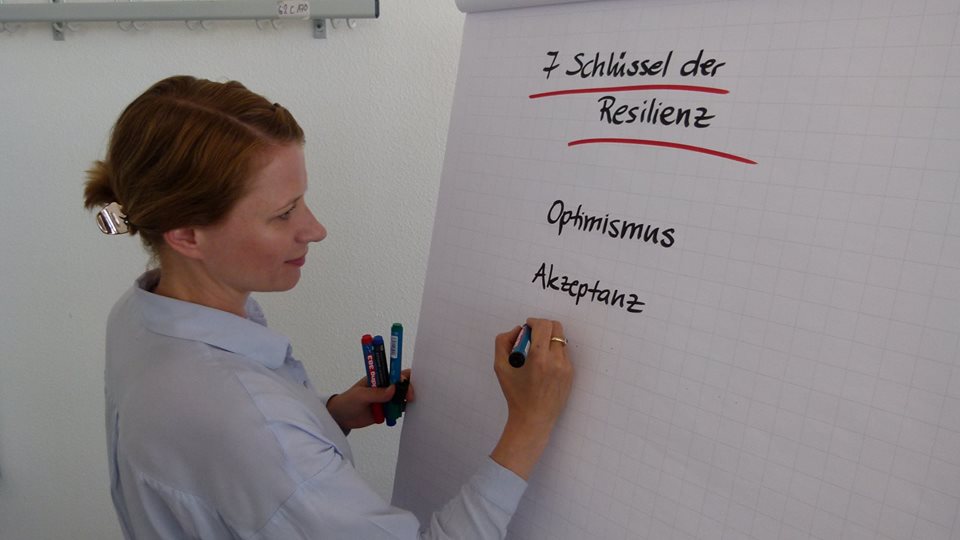 62C170
7 Schlüssel der
Resilienz
Optimismus
Akzeptanz